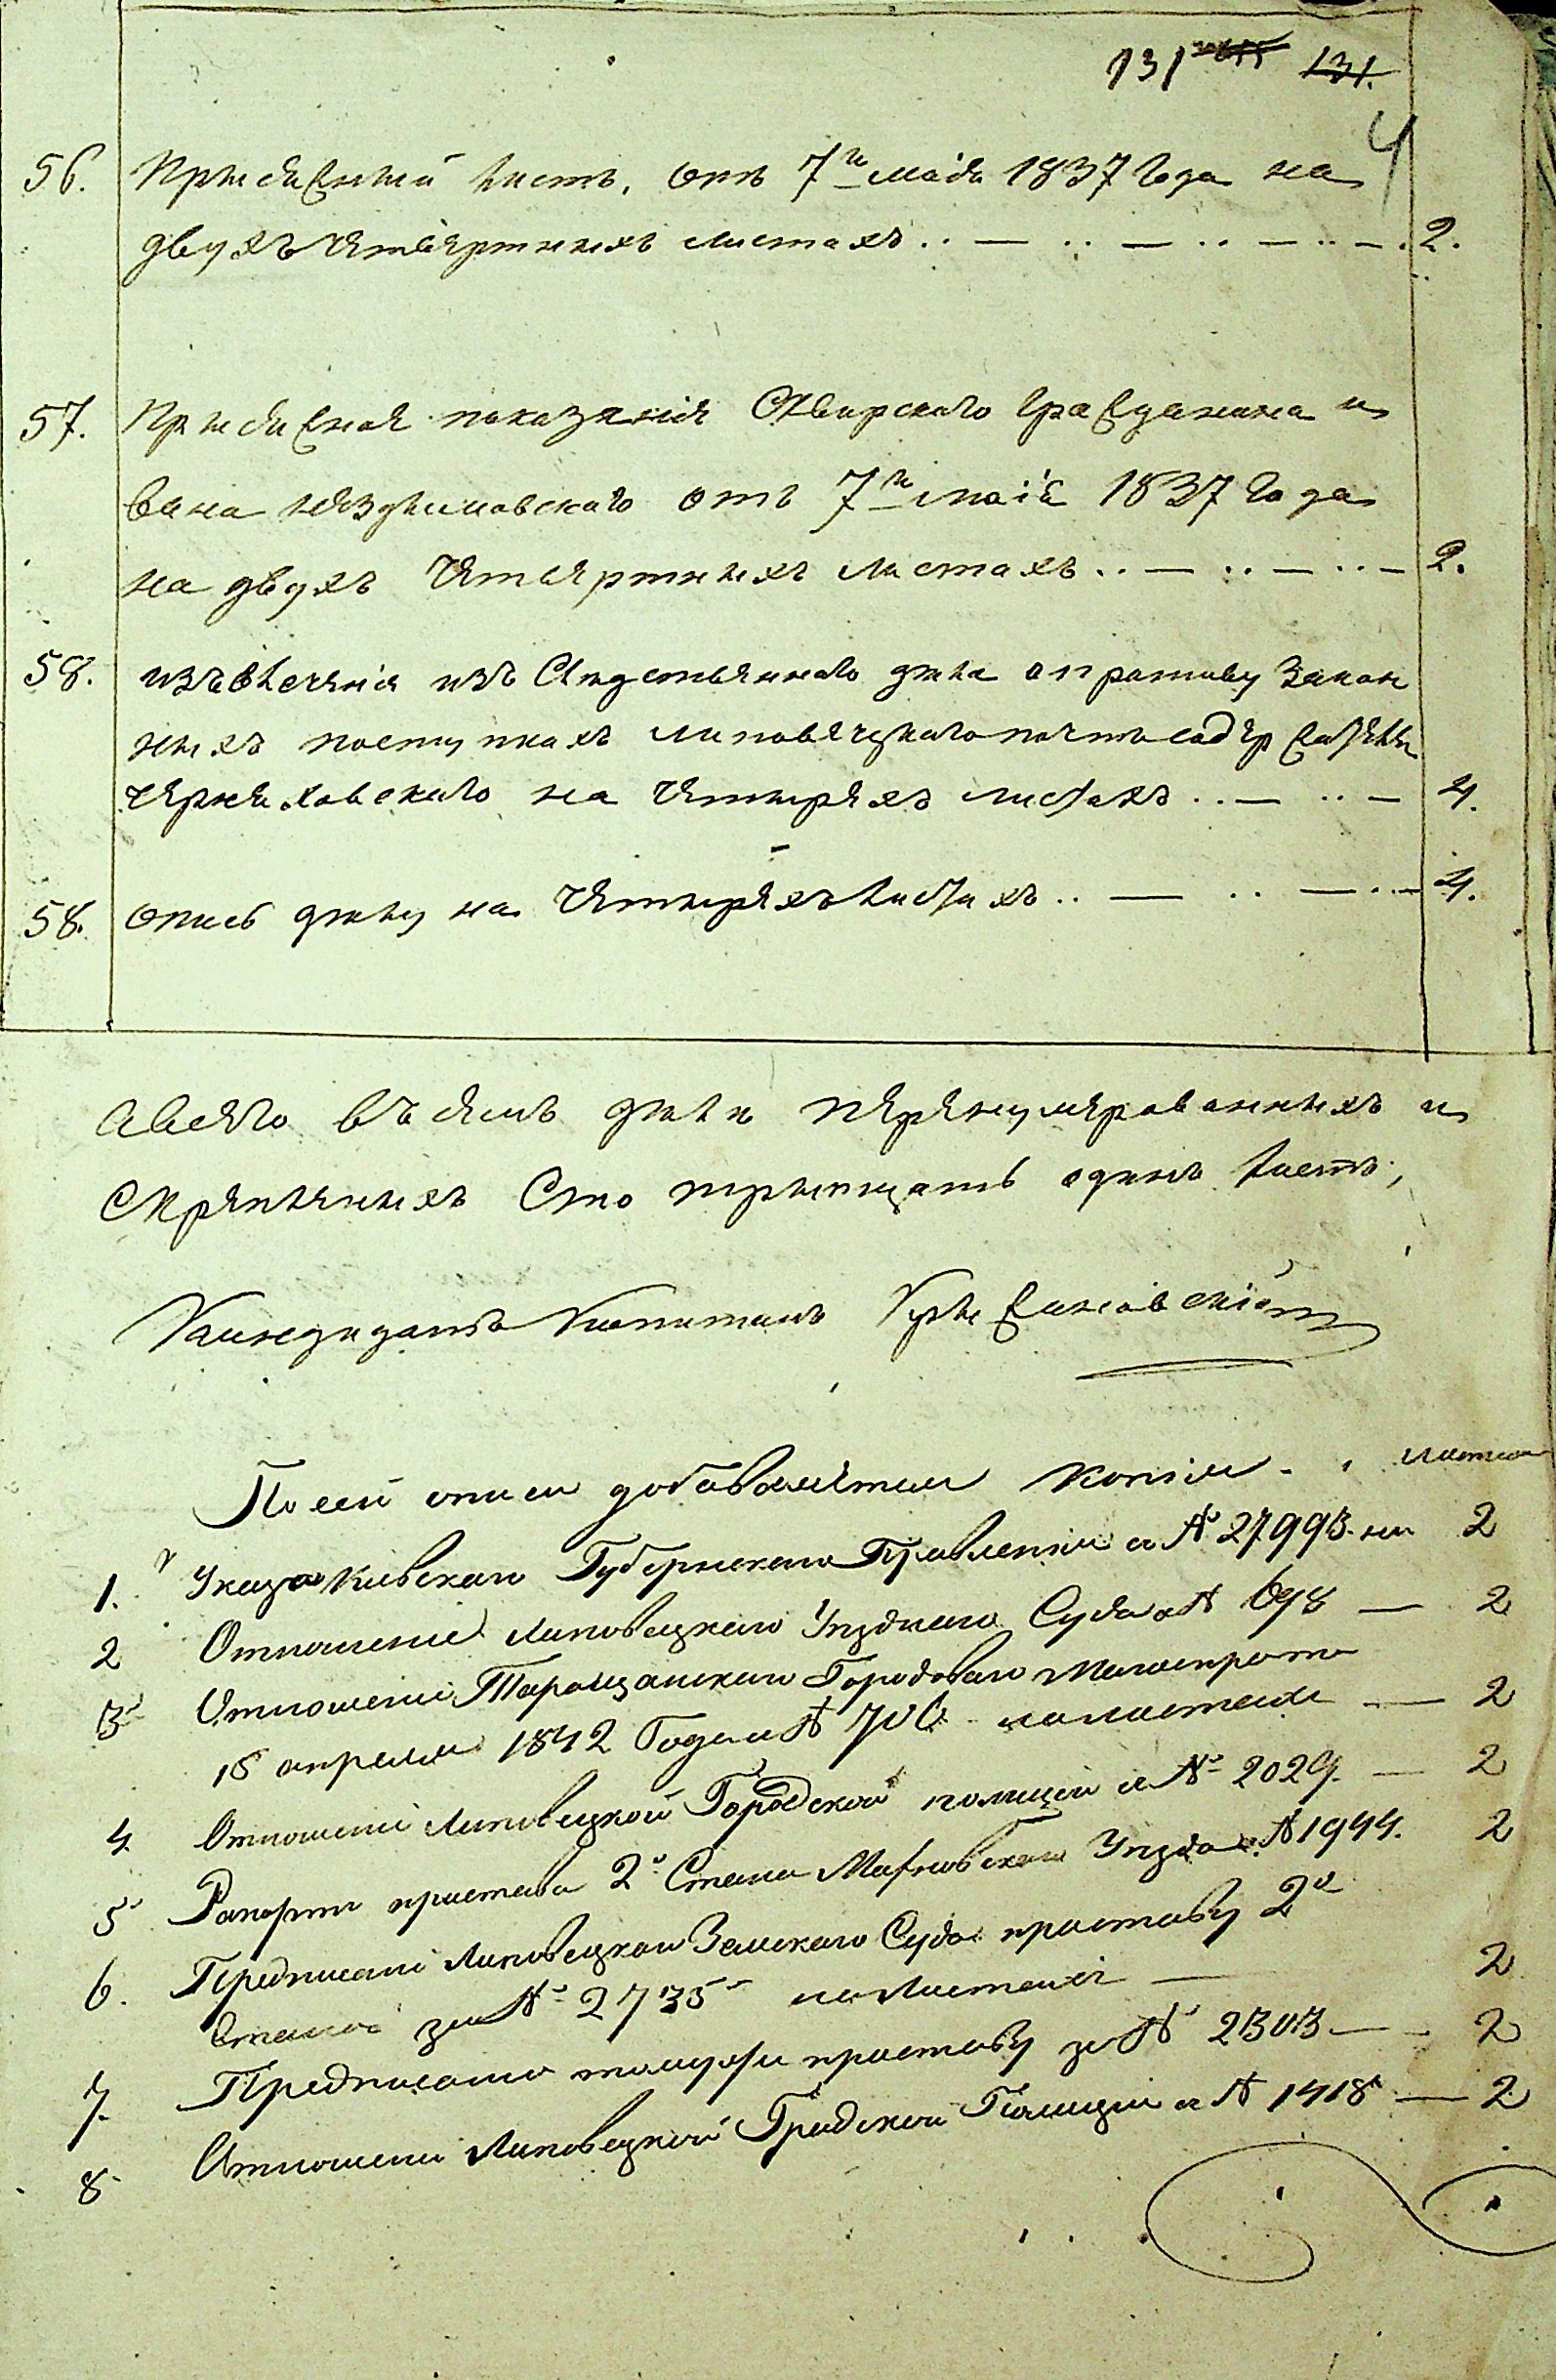 131 131.
4
56. Присяжный листъ, отъ 7го маія 1837 Года на
двухъ четвертныхъ листахъ .. — .. — .. — .. — . 2.
57. Присяжное показанія Сквирского гражданина и
вана отъ 7го маія 1837 Года
на двухъ четвертныхъ листахъ .. — .. — .. — 2.
58. изъ Следственнаго дела о противу Закон
ныхъ поступкахъ липовецкого
черняховскаго на четырехъ листахъ .. — .. — 4.
58. опись делу на четырехъ листахъ .. — .. — .. — 4.
Авсего въ семъ деле перенумерованныхъ и
скрепленныхъ Сто тритцать одинъ листъ,
Кандидатъ Капитанъ
По сей описи добавляется копіи
1. Указа Киевскаго Губернскаго Правленія за № 27993 на 2
2 Отношеніе Липовецкаго Уезднаго Суда за № 698 — 2
3 Отношеніе Таращанскаго Городоваго Магистрата
18 апреля 1842 Года за № 706 на листахъ — 2
4. Отношеніе Липовецкой Городской полиціи за № 2024. — 2
5 Рапортъ пристава 2го Стана Махновскаго Уезда за № 1944. 2
6. Предписаніе Липовецкаго Земскаго Суда приставу 2го
Стана за № 2735 на листахъ — 2
7. Предписаніе томуже приставу за № 2303 — 2
8 Отношеніе Липовецкой Градской Полиціи за № 1418 — 2